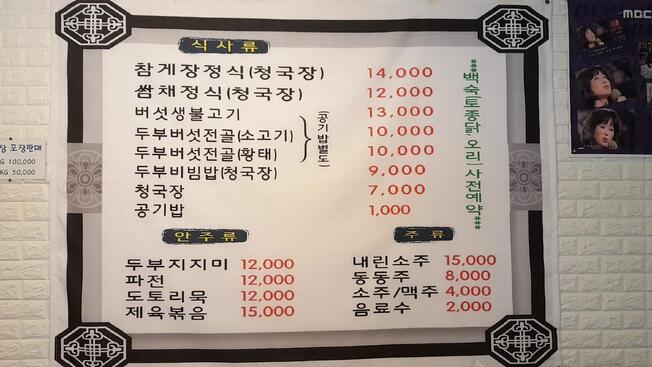 식사류
참게장정식(청국장) 14,000
쌈채정식(청국장) 12,000
버섯생불고기 13,000
두부버섯전골(소고기) 10,000
두부버섯전골(황태) 10,000
(공기밥별도)
두부비빔밥(청국장) 9,000
청국장 7,000
공기밥 1,000
***백숙토종닭, 오리 사전예약***
안주류
두부지지미 12,000
파전 12,000
도토리묵 12,000
제육볶음 15,000
주류
내린소주 15,000
동동주 8,000
소주/맥주 4,000
음료수 2,000
장 포장판매
KG 100,000
KG 50,000
MBC